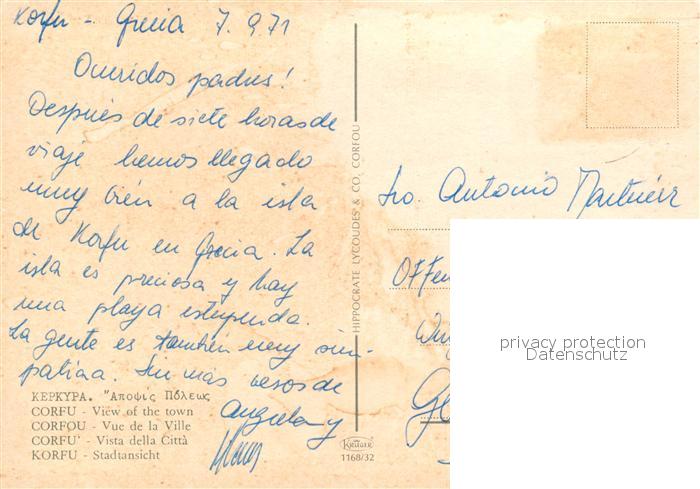 Korfu - Grecia 7.9.71
Queridos padres!
Después de siete horas de
viaje hemos llegado
muy bien a la isla
de Korfu en Grecia. La
isla es preciosa y hay
una playa estupenda.
La gente es también muy sim-
patica. Sin más besos de
Angela y
ΚΕΡΚΥΡΑ. "Αποψις Πόλεως
CORFU - View of the town
CORFOU - Vue de la Ville
CORFU' - Vista della Città
KORFU - Stadtansicht
HIPPOCRATE LYCOUDES & CO, CORFOU
KRÜGER
1168/32
Antonio Martinez
OFFen
privacy protection
Datenschutz